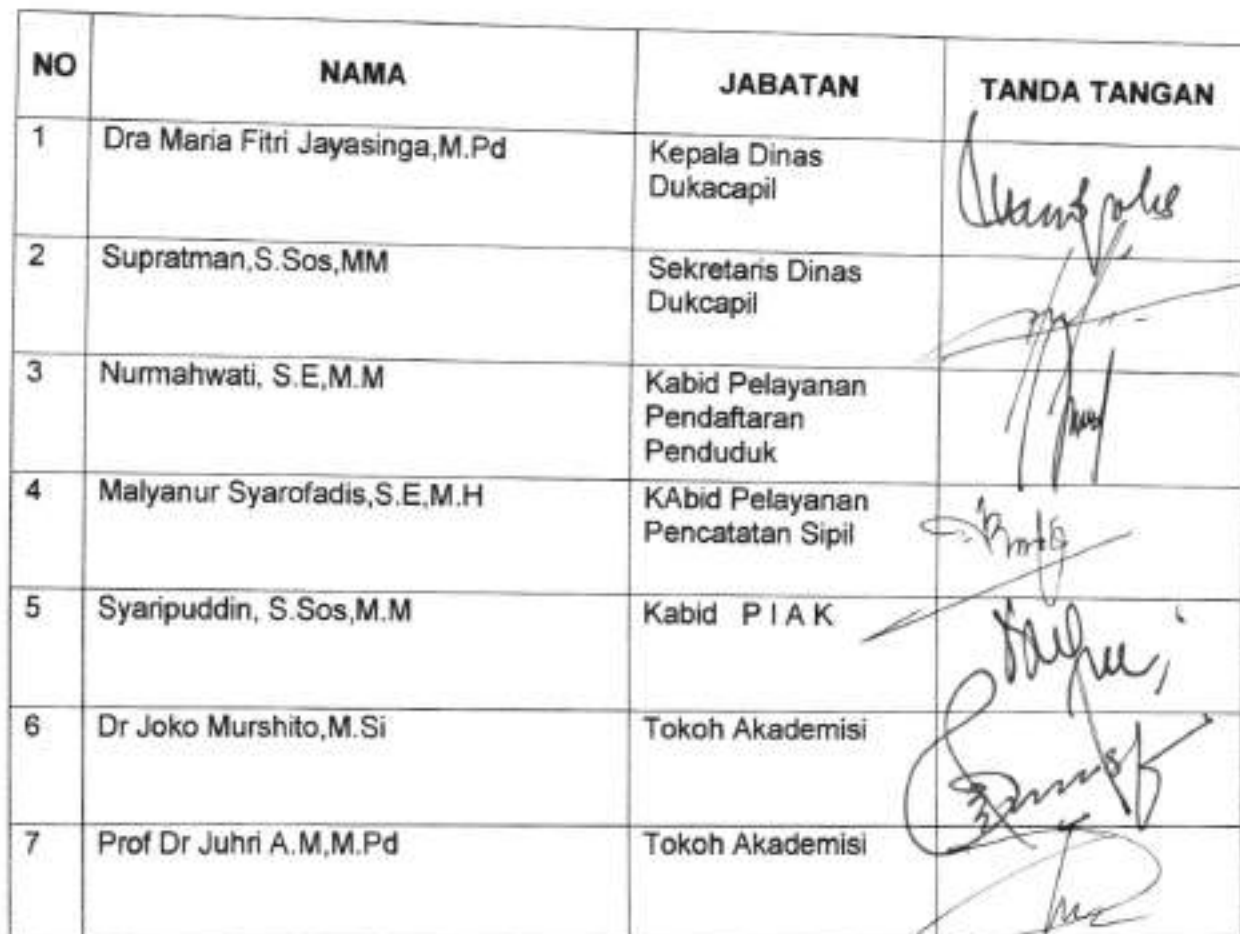 NO NAMA JABATAN TANDA TANGAN
1 Dra Maria Fitri Jayasinga,M.Pd Kepala Dinas
Dukacapil
2 Supratman,S.Sos,MM Sekretaris Dinas
Dukcapil
3 Nurmahwati, S.E,M.M Kabid Pelayanan
Pendaftaran
Penduduk
4 Malyanur Syarofadis,S.E,M.H KAbid Pelayanan
Pencatatan Sipil
5 Syaripuddin, S.Sos,M.M Kabid P I A K
6 Dr Joko Murshito,M.Si Tokoh Akademisi
7 Prof Dr Juhri A.M,M.Pd Tokoh Akademisi